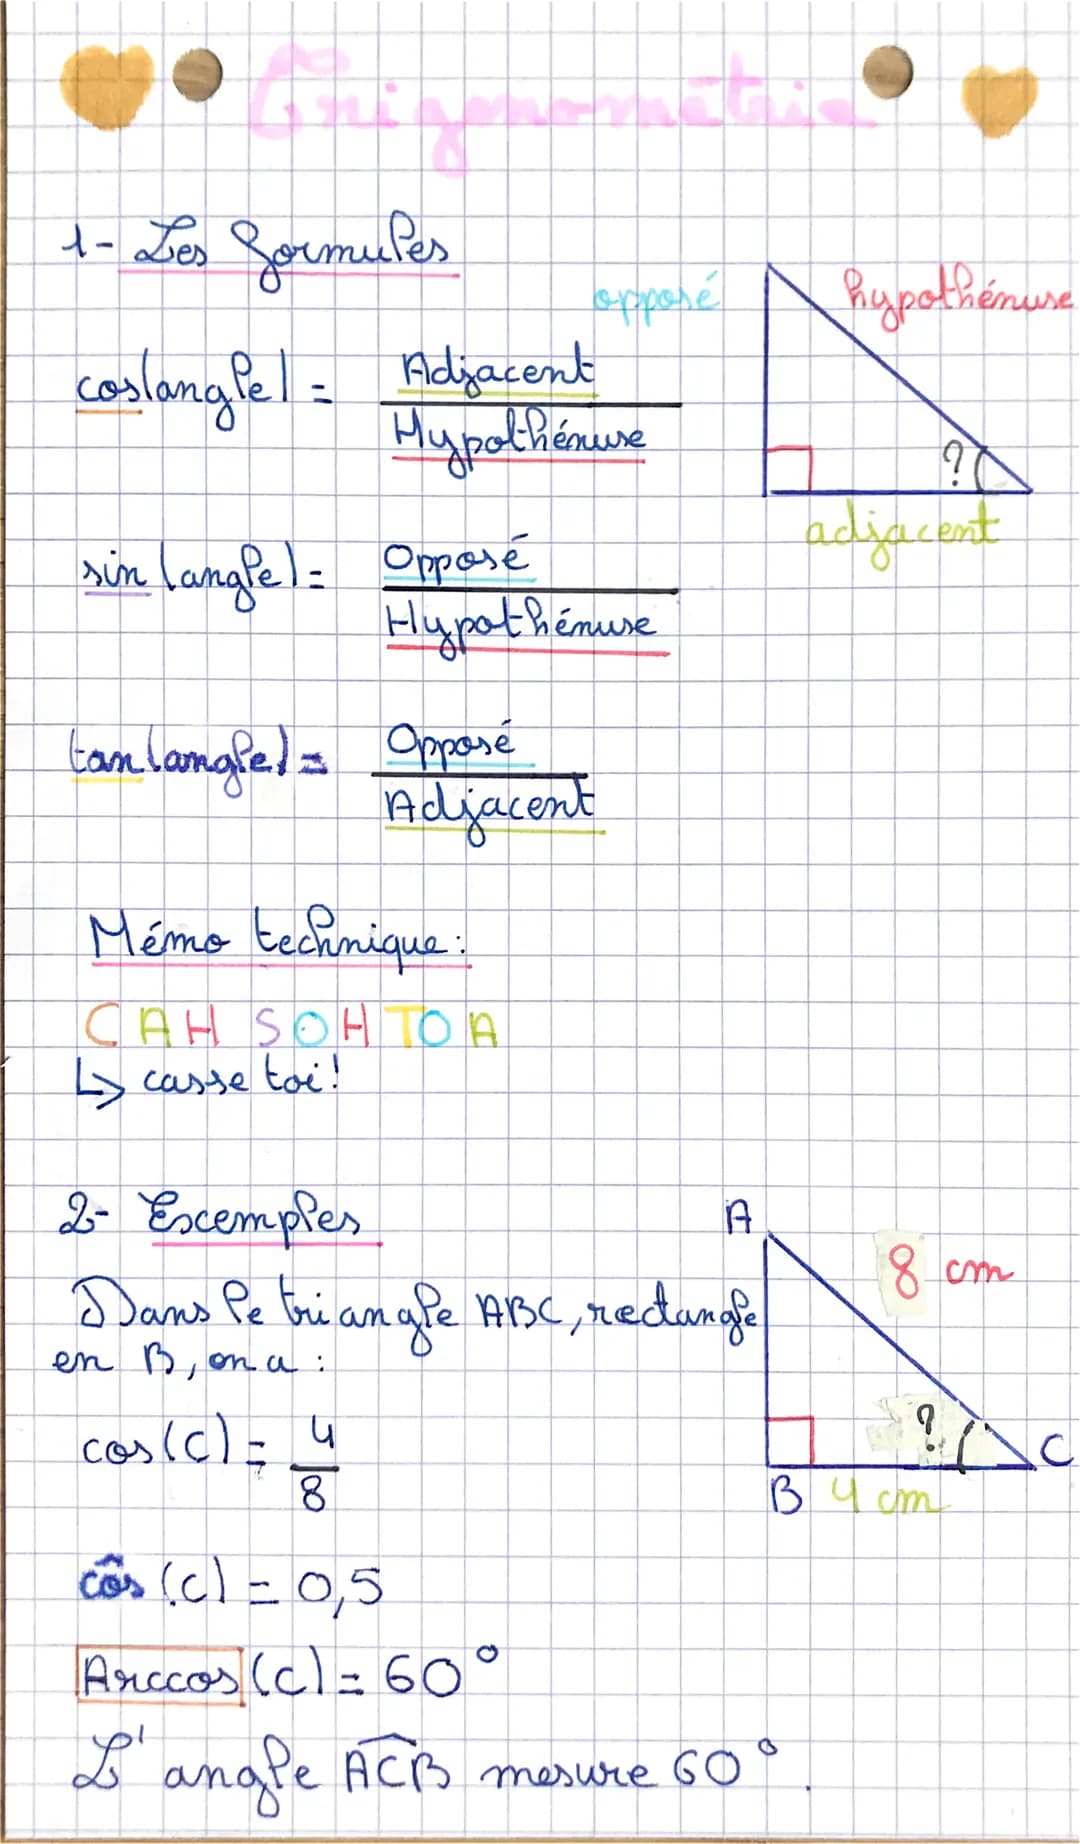 Trigonométrie
1- Les formules
opposé
hypothénuse
cos(angle) = Adjacent
Hypothénuse
?
adjacent
sin (angle) = Opposé
Hypothénuse
tan (angle) = Opposé
Adjacent
Mémo technique :
CAH SOH TOA
↳ casse toi !
2- Exemples
A
8 cm
Dans le triangle ABC, rectangle
en B, on a :
?
C
B 4 cm
cos (C) = 4
8
cos (C) = 0,5
Arccos (C) = 60°
L'angle ACB mesure 60°.